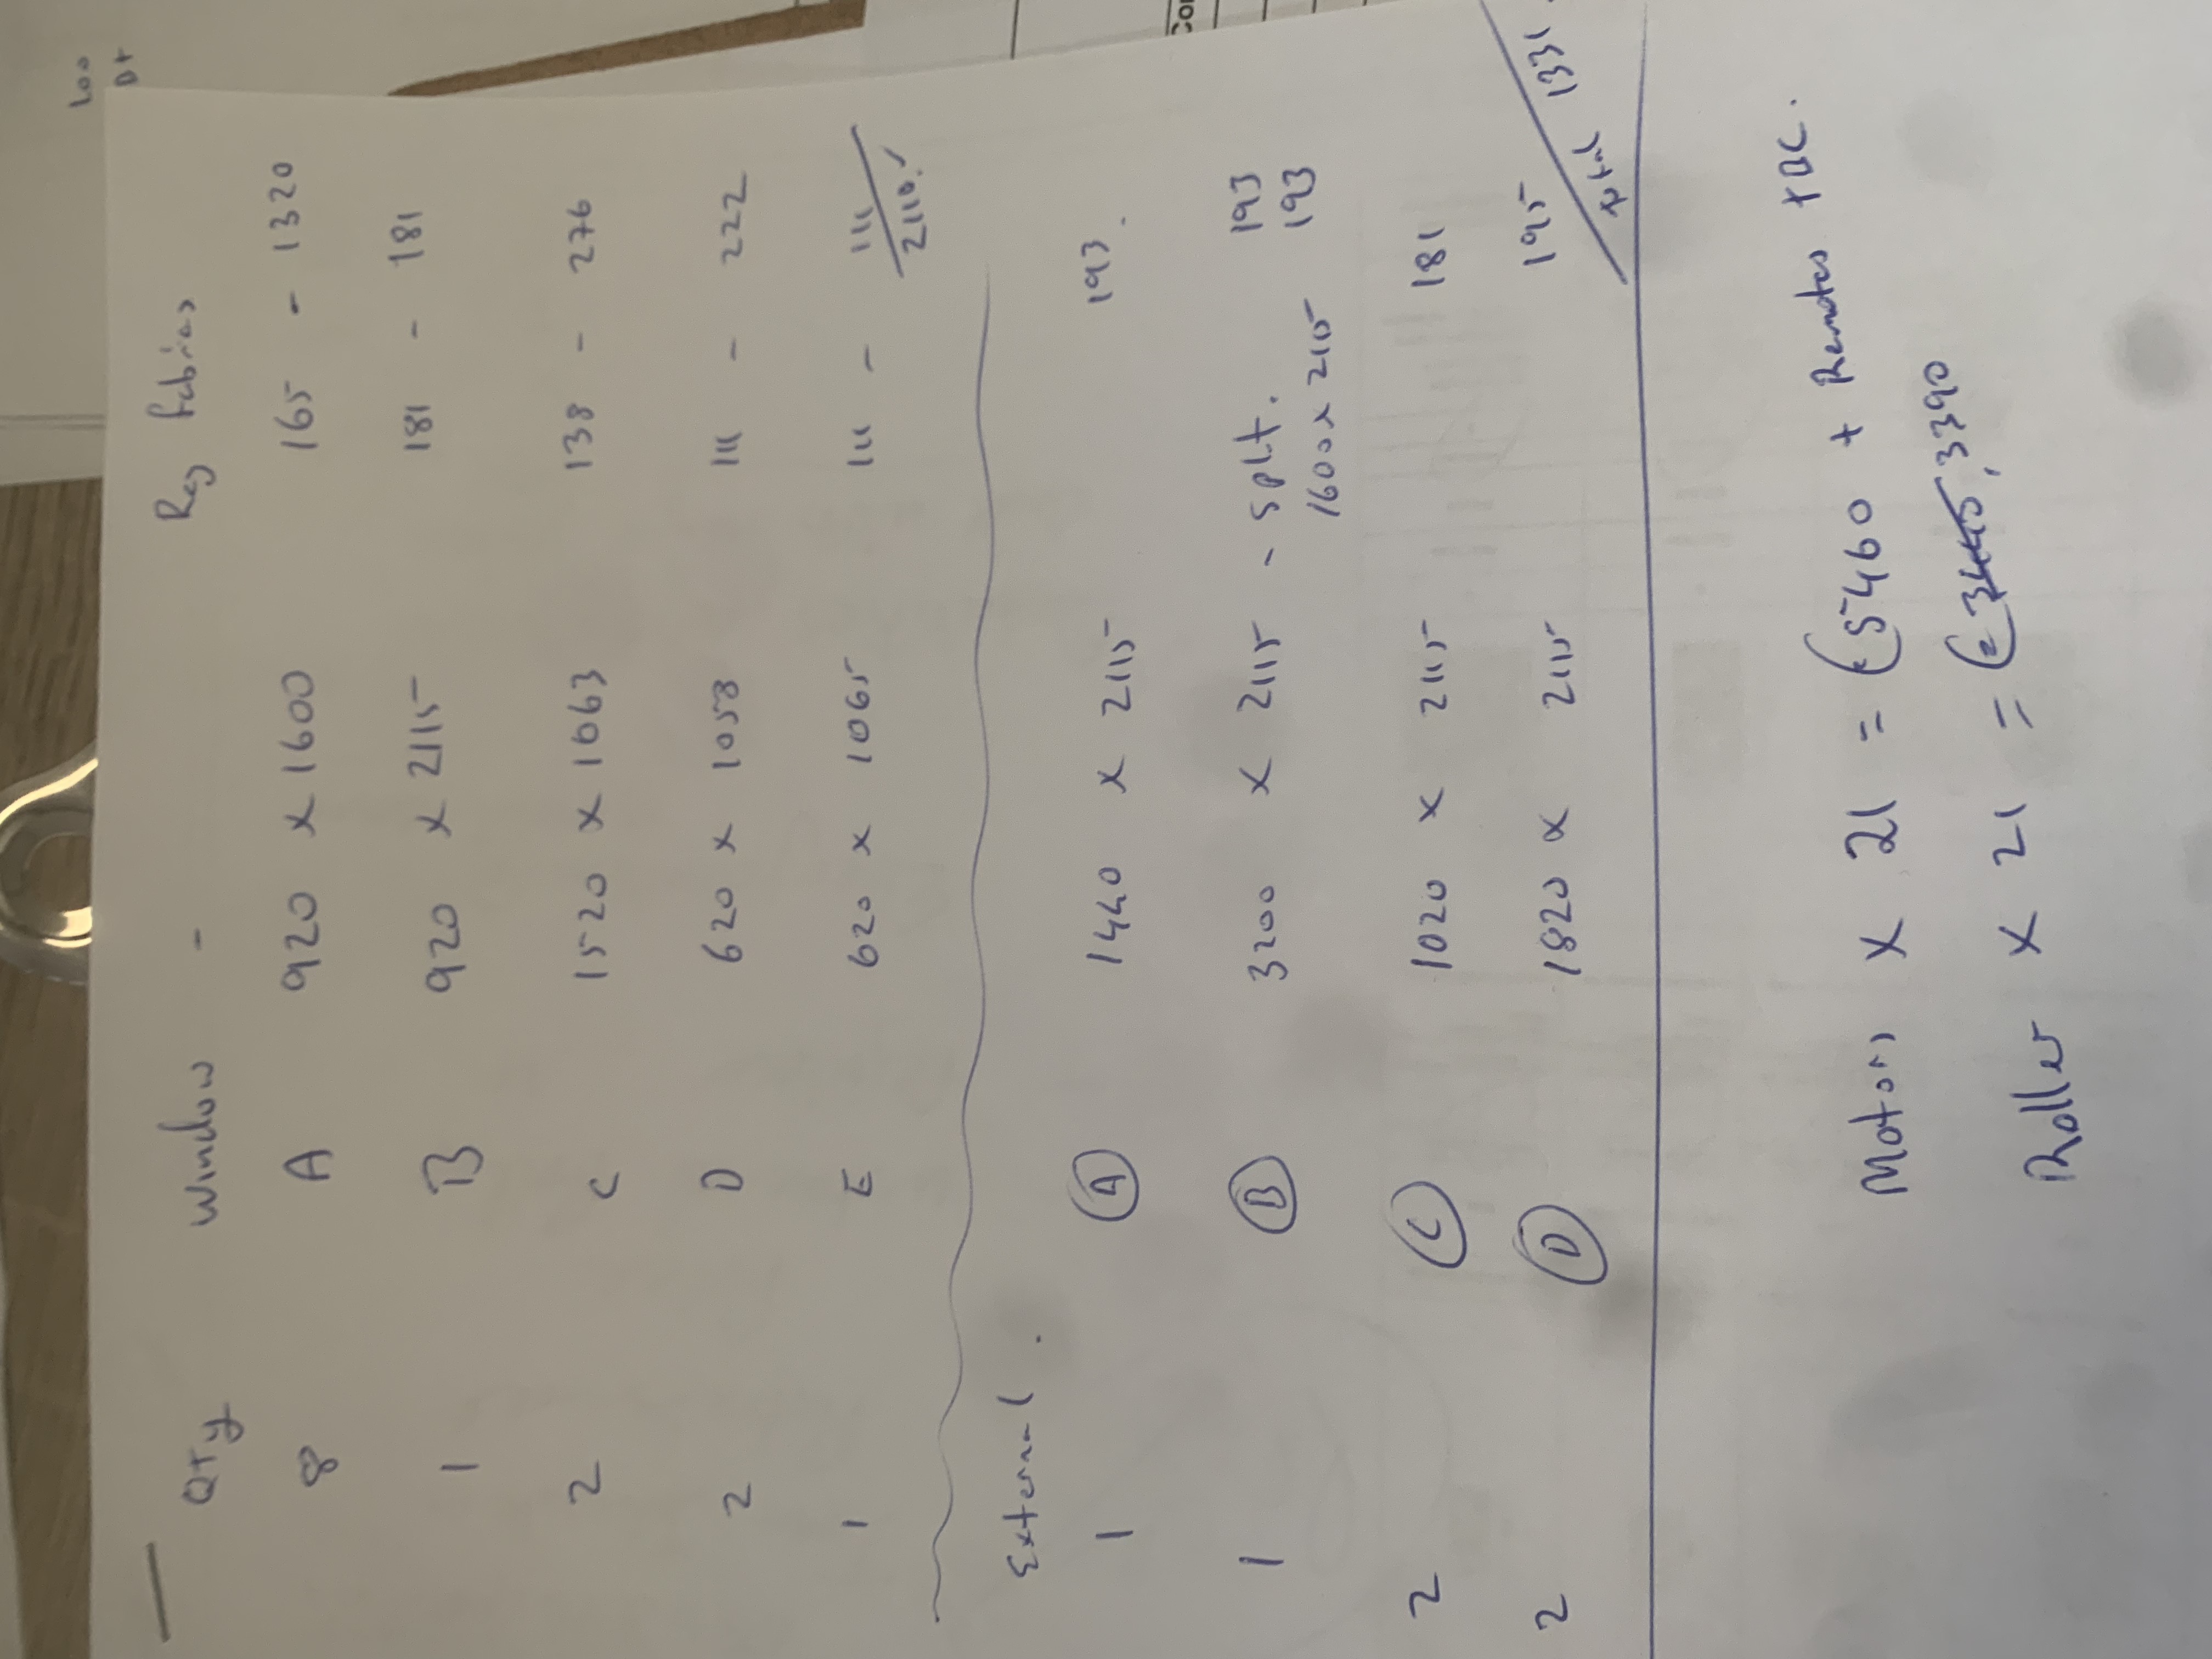 100
D+
Co
Qty Window - Reg fabrics
8 A 920 x 1600 165 - 1320
1 B 920 x 2115 181 - 181
2 C 1520 x 1063 138 - 276
2 D 620 x 1058 111 - 222
1 E 620 x 1065 111 - 111
2110.
External.
1 A 1440 x 2115 193.
1 B 3200 x 2115 - split. 193
1600 x 2115 193
2 C 1020 x 2115 181
2 D 1820 x 2115 195
total 1331
Motors x 21 = 5460 + Remotes tbc.
Roller x 21 = 3390